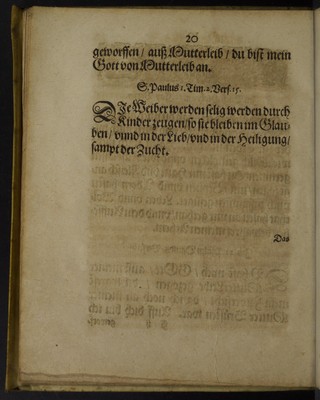 20
geworffen / auß Mutterleib / du bist mein
Gott von Mutterleib an.
S. Paulus 1. Tim. 2. Vers. 15.
DJe Weiber werden selig werden durch
Kinder zeugen / so sie bleiben im Glau-
ben / vnnd in der Lieb / vnd in der Heiligung /
sampt der Zucht.
Das